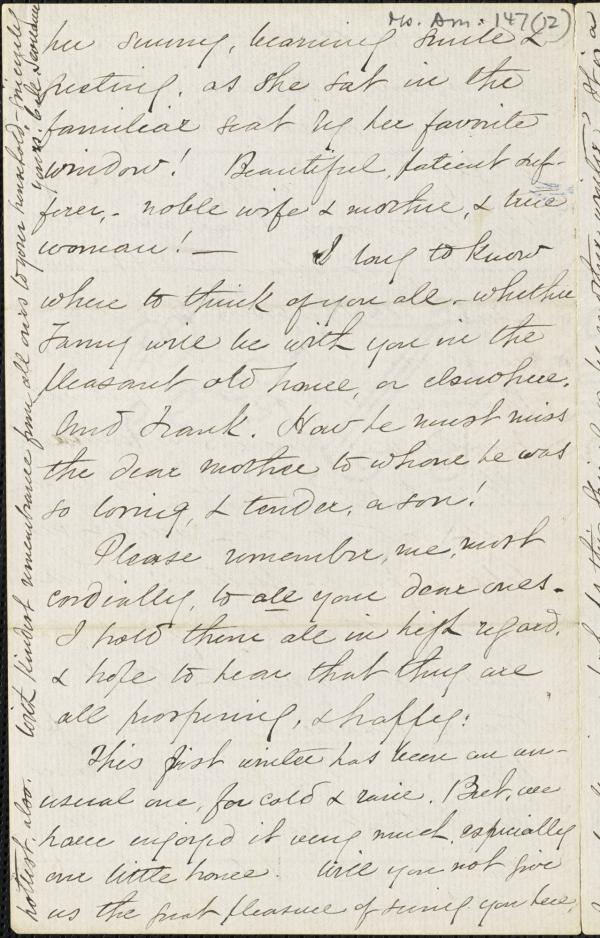 Ms. Am. 147 (12)
her sunny, beaming smile &
greeting, as she sat in the
familiar seat by her favorite
window! Beautiful, patient suf-
ferer, - noble wife & mother, & true
woman! — I long to know
where to think of you all - whether
Fanny will be with you in the
pleasant old house, or elsewhere.
And Frank. How he must miss
the dear mother to whom he was
so loving, & tender, a son!
Please remember, me, most
cordially, to all your dear ones -
I hold them all in high regard,
& hope to hear that they are
all prospering, & happy.
This first winter has been an un-
usual one, for cold & rain. But, we
have enjoyed it very much, especially
our little house. Will you not give
us the great pleasure of seeing you here,
hottest, also. With kindest remembrance from all ours to your household, - sincerely
yours,